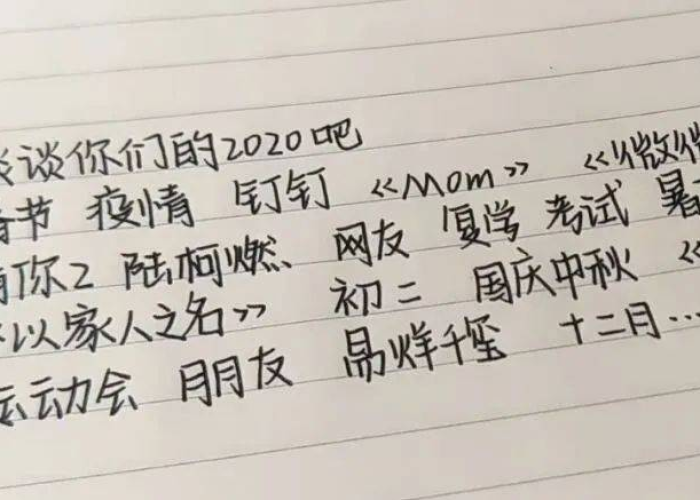 谈谈你们的2020吧
春节 疫情 钉钉 《Mom》 《微微
有你2 陆柯燃 网友 复学 考试 暑
《以家人之名》 初二 国庆中秋 《
运动会 朋友 易烊千玺 十二月…